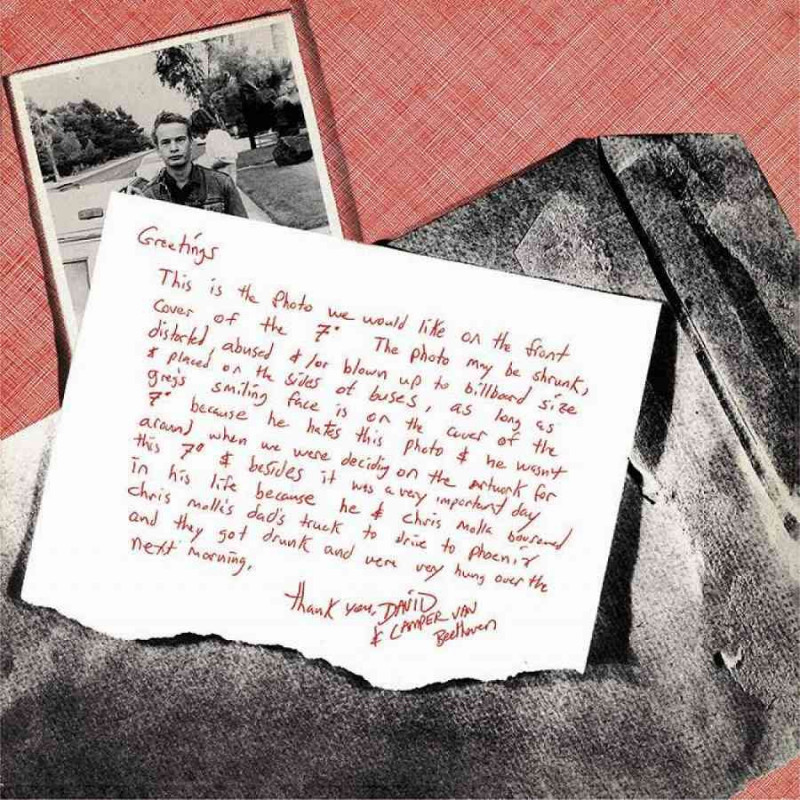 Greetings
This is the Photo we would like on the front
cover of the 7" The photo may be shrunk,
distorted, abused &/or blown up to billboard size
& placed on the sides of buses, as long as
greg's smiling face is on the cover of the
7" because he hates this photo & he wasn't
around when we were deciding on the artwork for
this 7" & besides it was a very important day
in his life because he & Chris Molla borrowed
Chris molla's dad's truck to drive to phoenix
and they got drunk and were very hung over the
next morning.
thank you, DAVID
& CAMPER VAN
Beethoven